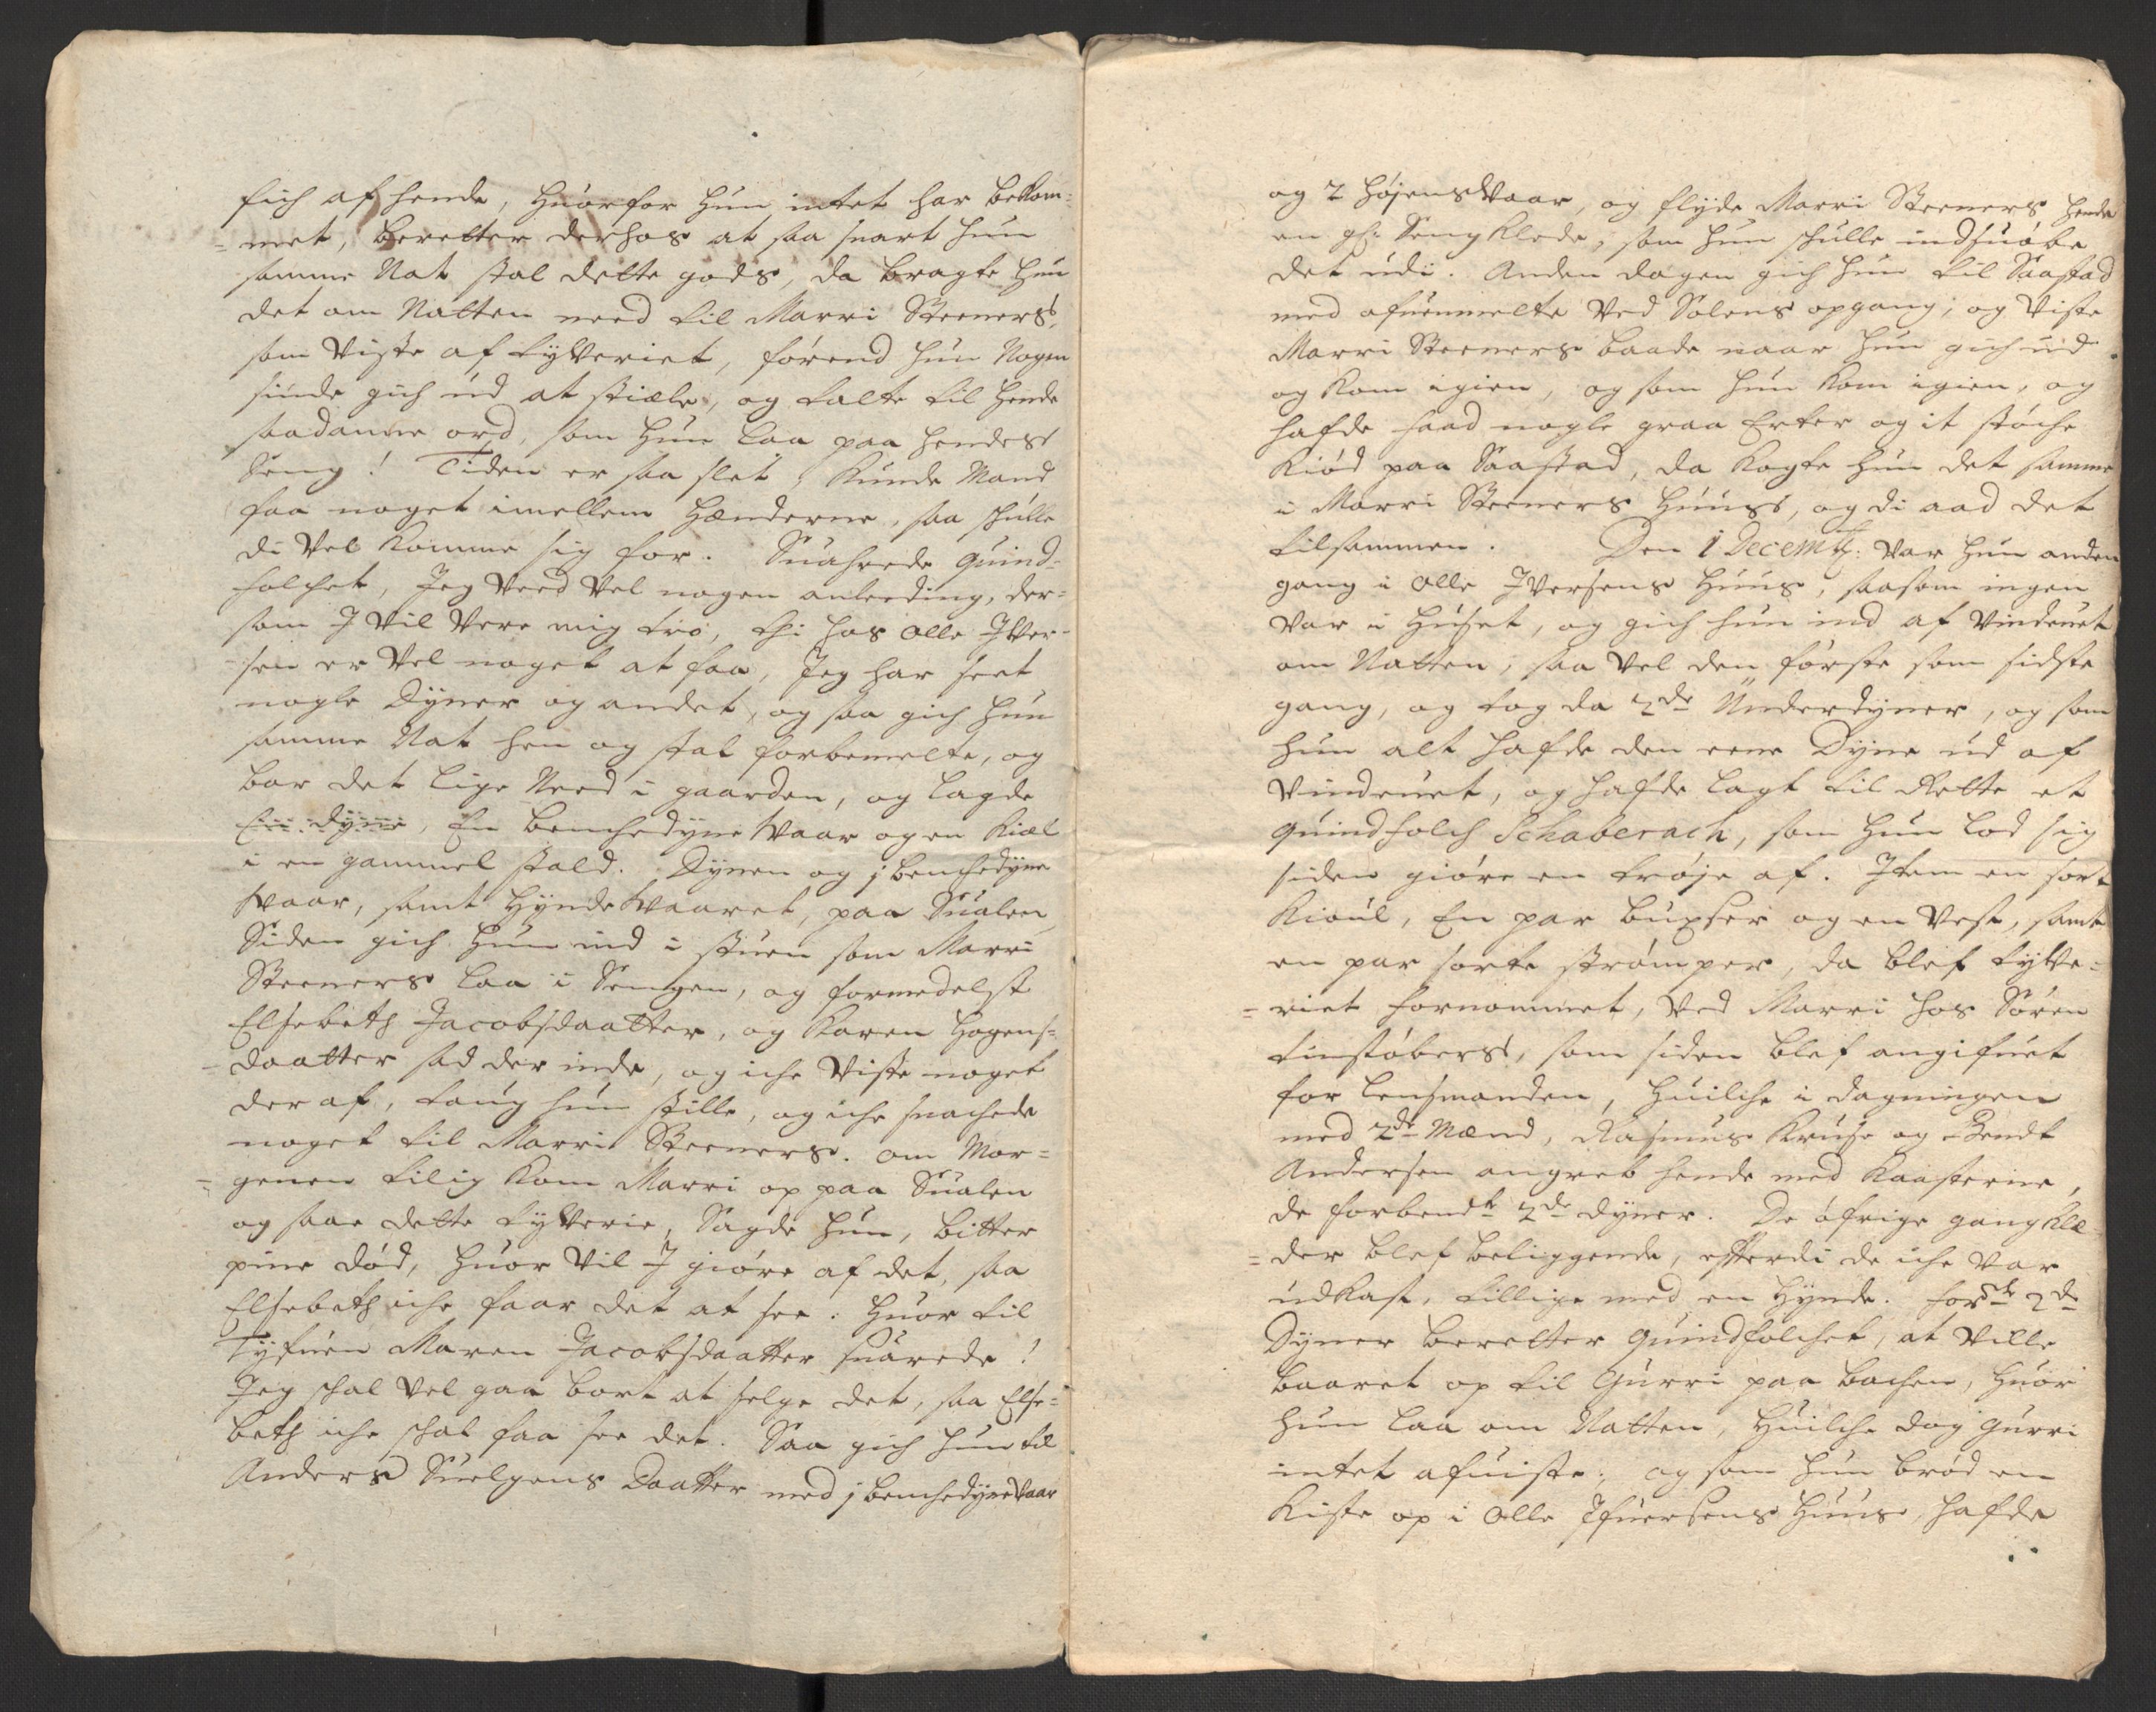 fich af hende, Huorfor hun intet har bekom-
-met, beretter derhos at saa snart hun
samme Nat stal dette gods, da bragte hun
det om Natten need til Marri Steeners,
som viste af tyfveriet, førend hun Nogen
sinde gich ud at stiæle, og talte til hende
saadanne ord, som hun laa paa hendes
Seng! Tiden er saa slet, kunde Mand
faa noget imellem Hænderne, saa skulle
di vel komme sig for. Suarede quind-
folchet, Jeg veed vel nogen anleeding, der-
som J vil vere mig tro, thi hos Olle Jver-
-sen er vel noget at faa, Jeg har seet
nogle Dyner og andet, og saa gich hun
samme Nat hen og stal forbemelte, og
bar det lige Need i gaarden, og lagde
En dyne, En benchedyne Vaar og en Kiæl
i en gammel stald. Dynen og j benchedyne
Vaar, samt Hynde Vaaret, paa Sualen
Siden gich hun ind i stuen som Marri
Steeners laa i Sengen, og formedelst
Elsebeth Jacobsdaatter, og Karen Hogens-
-daatter sad der inde, og iche viste noget
der af, taug hun stille, og iche snachede
noget til Marri Steeners. om Mor-
-genen tilig kom Marri op paa Sualen
og saae dette tyfverie, Sagde hun, bitter
pine død, huor vil J giøre af det, saa
Elsebeth iche faar det at see. Huor til
Tyfuen Maren Jacobsdaatter suarede!
Jeg schal vel gaa bort at selge det, saa Else-
beth iche schal faa see det. Saa gich hun til
Anders Suelgens Daatter med j benchedyne Vaar
og 2 Høyensvaar, og flyde Marri Steeners hende
en gl: Sengklede, som hun schulle indsuøbe
det udi. Anden dagen gich hun til Saastad
med ofuenmelte ved Solens opgang; og viste
Marri Steeners baade naar hun gich ud
og kom igien, og som hun kom igien, og
hafde faad nogle graa Erter og it støche
Kiød paa Saastad, da kogte hun det samme
i Marri Steeners Huus, og di aad det
tilsammen. Den 1 Decemb: var hun anden
gang i Olle Jversens Huus, saasom ingen
var i Huset, og gich hun ind af vinduet
om Natten, saa vel den første som sidste
gang, og tog da 2de Underdyner, og som
hun alt hafde den eene Dyne ud af
vinduet, og hafde lagt til Rette et
quindfolch Schaberach, som hun lod sig
siden giøre en trøje af. Jtem en sort
Kioul, En par buxser og en vest, samt
en par sorte strømper, da blef tyfve-
-riet fornommet, ved Marri hos Søren
tinstøbers, som siden blef angifuet
for lensmanden, Huilche i dagningen
med 2de Mænd, Rasmus Kruse og Bendt
Andersen angreb hende med kaasterne,
de forbende 2de dyner. De øfrige gangklæ-
-der blef beliggende, efterdi de iche var
udkast, tillige med en Hynde. forde 2de
Dyner beretter quindfolchet, at ville
baaret op til Gurri paa bachen, Huor
hun laa om Natten, Huilche dog Gurri
intet afuiste; og som hun brød en
Kiste op i Olle Jfuersens Huus, hafde